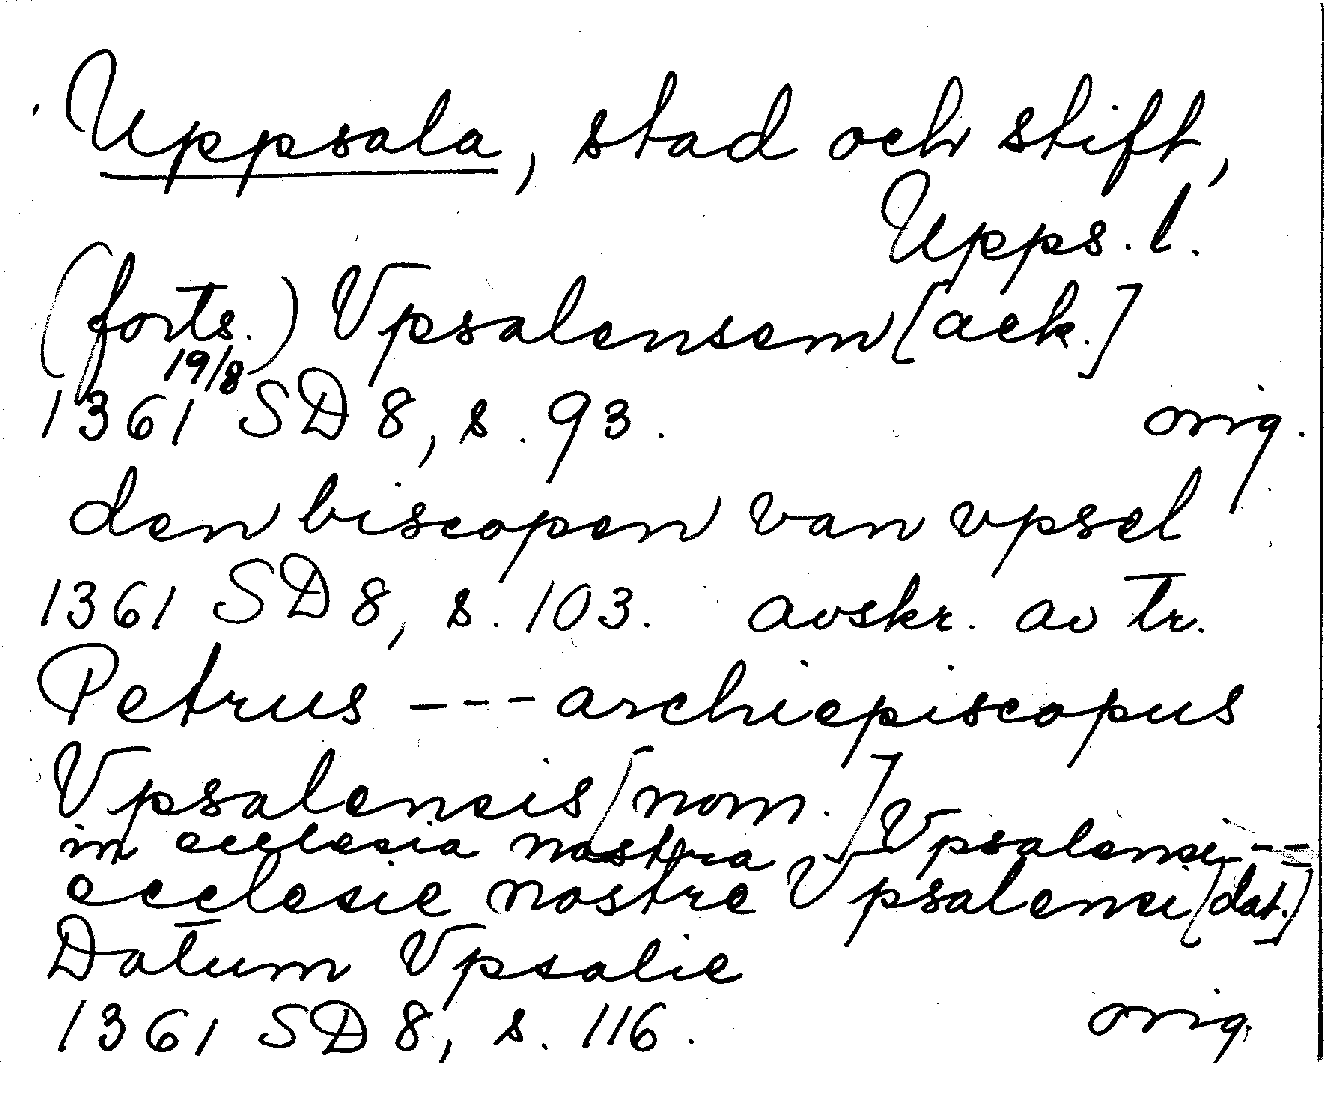 Uppsala, stad och stift,
Upps. l.
(forts.) Vpsalensem [ack.]
19/8
1361 SD 8, s. 93. orig.
den biscopen van vpsel
1361 SD 8, s. 103. avskr. av tr.
Petrus --- archiepiscopus
Vpsalensis [nom.]
in ecclesia nostra Vpsalensi ---
ecclesie nostre Vpsalensi [dat.]
Datum Vpsalie
1361 SD 8, s. 116. orig.